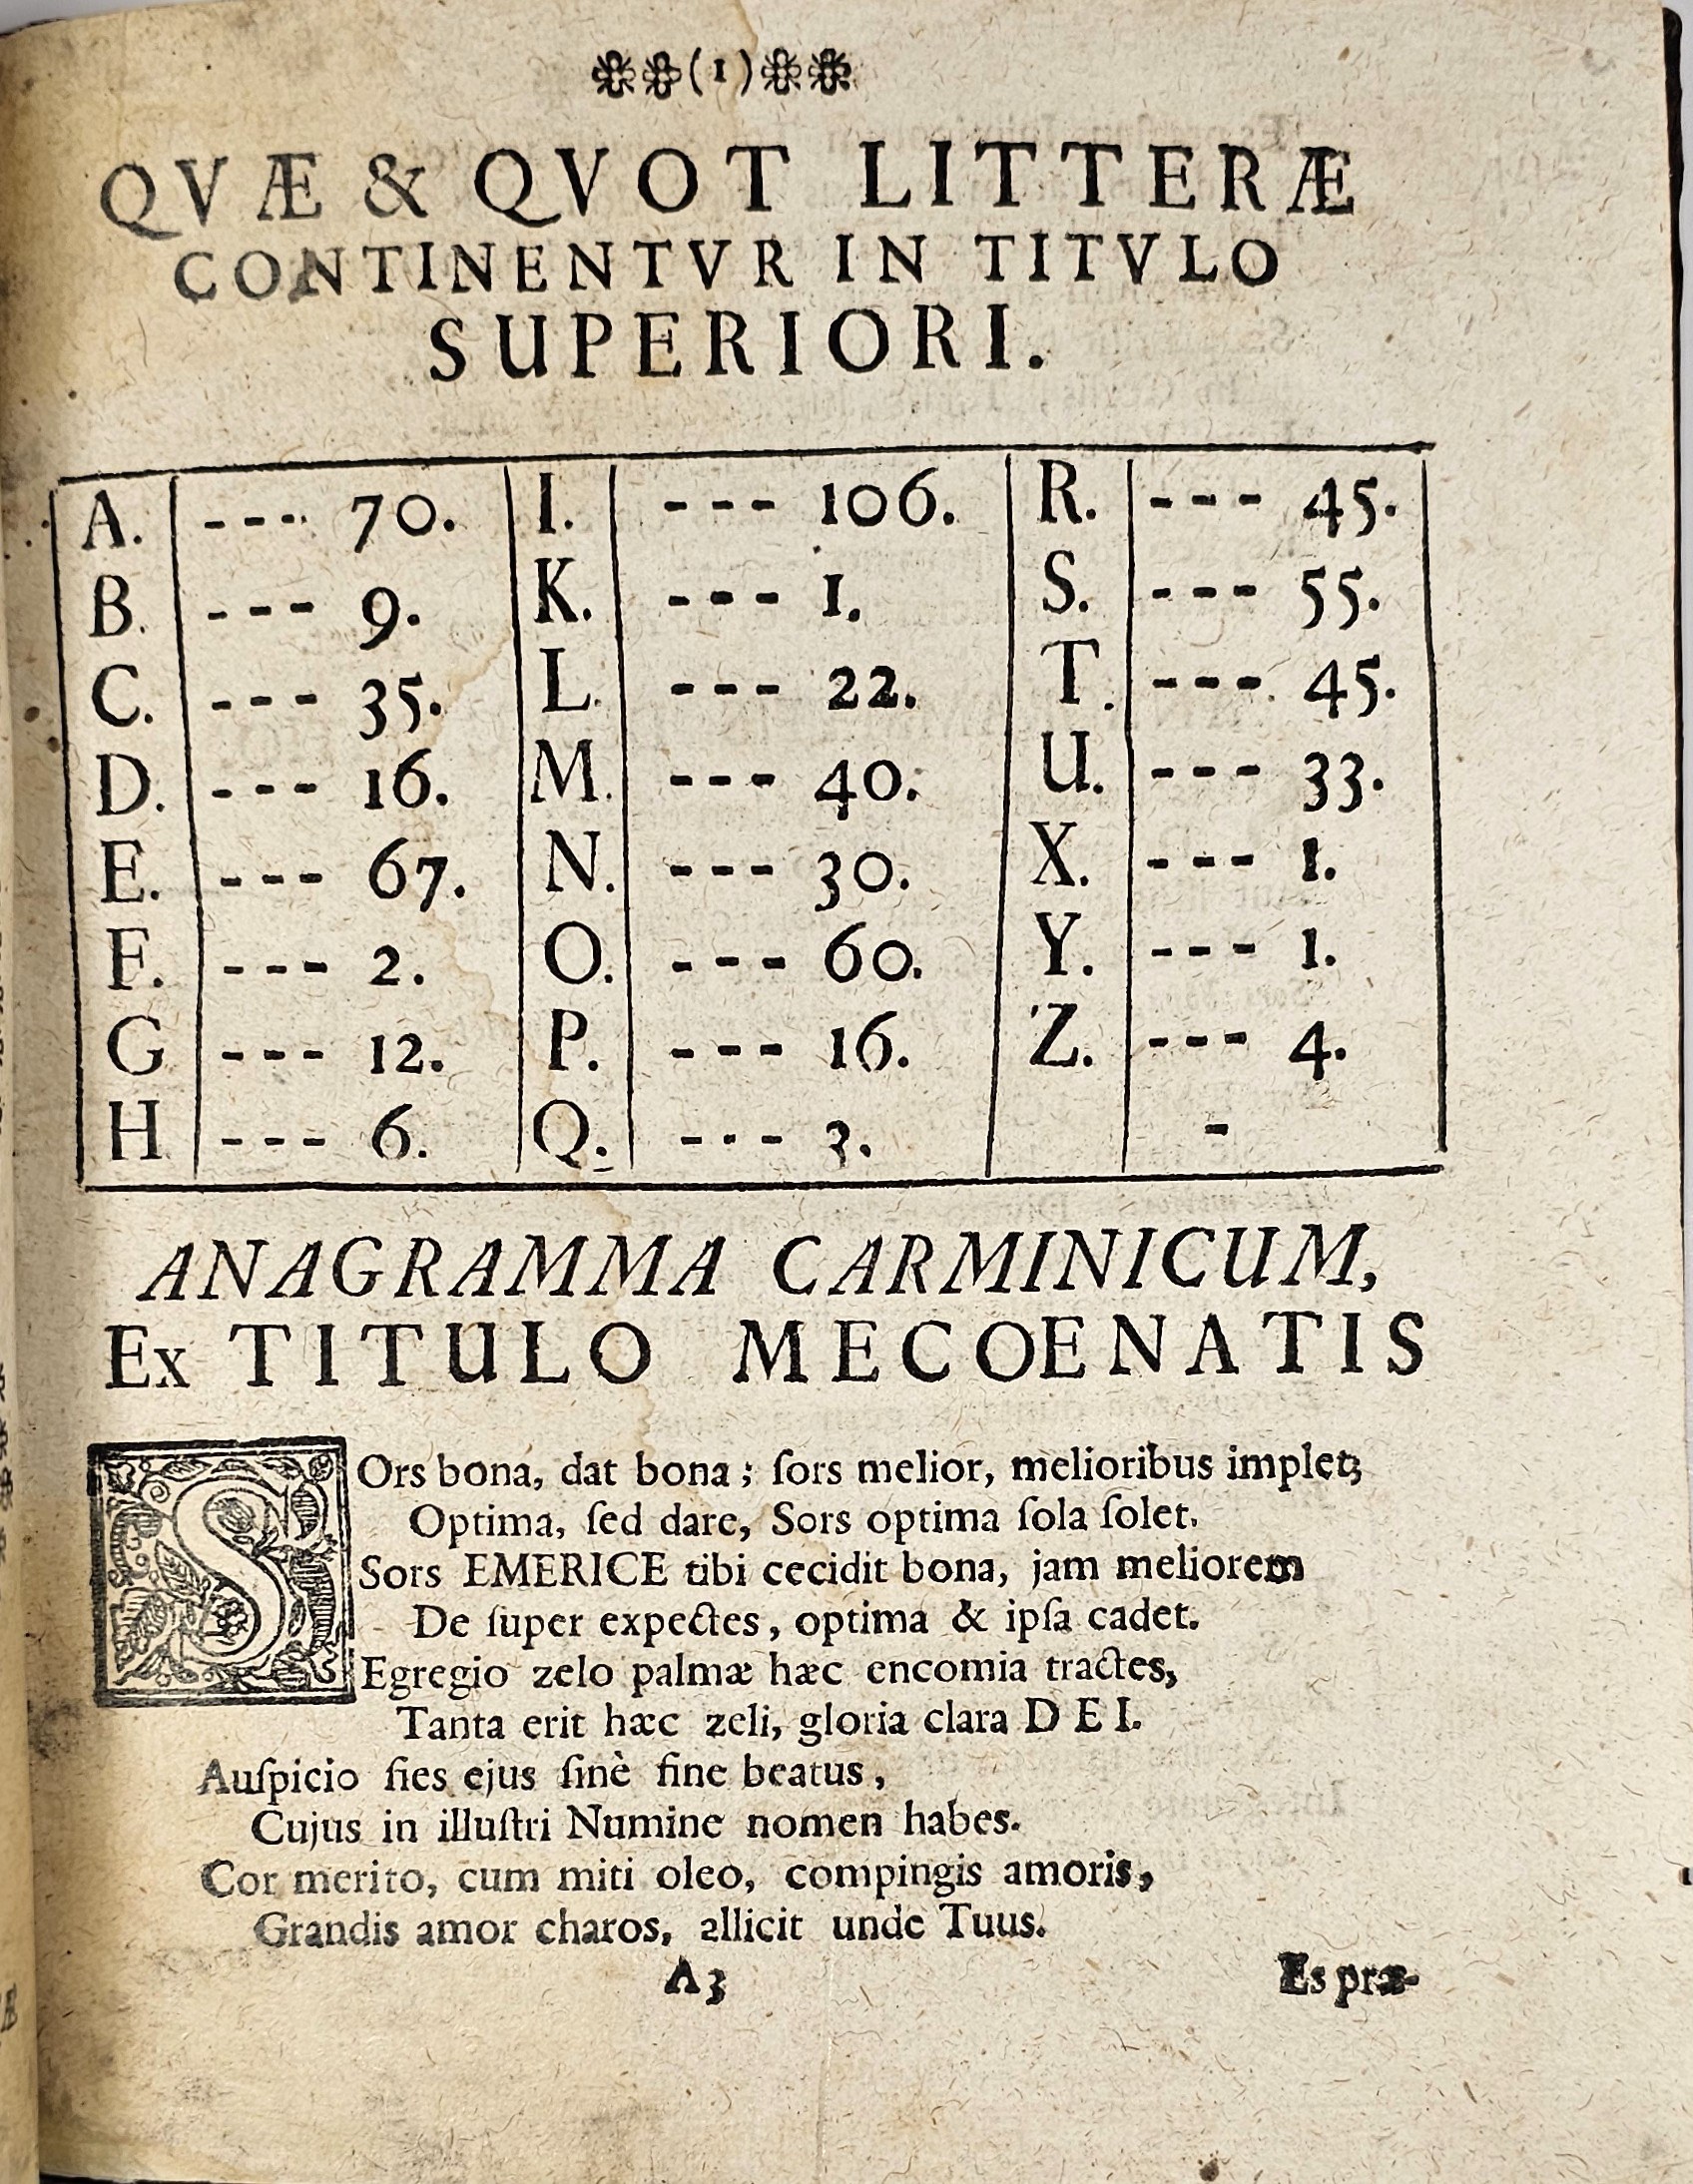 (1)
QVÆ & QVOT LITTERÆ
CONTINENTVR IN TITVLO
SUPERIORI.
A. --- 70. I. --- 106. R. --- 45.
B. --- 9. K. --- 1. S. --- 55.
C. --- 35. L. --- 22. T. --- 45.
D. --- 16. M. --- 40. U. --- 33.
E. --- 67. N. --- 30. X. --- 1.
F. --- 2. O. --- 60. Y. --- 1.
G --- 12. P. --- 16. Z. --- 4.
H --- 6. Q. --- 3. -
ANAGRAMMA CARMINICUM,
Ex TITULO MECOENATIS
SOrs bona, dat bona; ſors melior, melioribus implet;
Optima, ſed dare, Sors optima ſola ſolet.
Sors EMERICE tibi cecidit bona, jam meliorem
De ſuper expectes, optima & ipſa cadet.
Egregio zelo palmæ hæc encomia tractes,
Tanta erit hæc zeli, gloria clara DEI.
Auſpicio fies ejus ſinè fine beatus,
Cujus in illuſtri Numine nomen habes.
Cor merito, cum miti oleo, compingis amoris,
Grandis amor charos, allicit unde Tuus.
A3 Es præ-